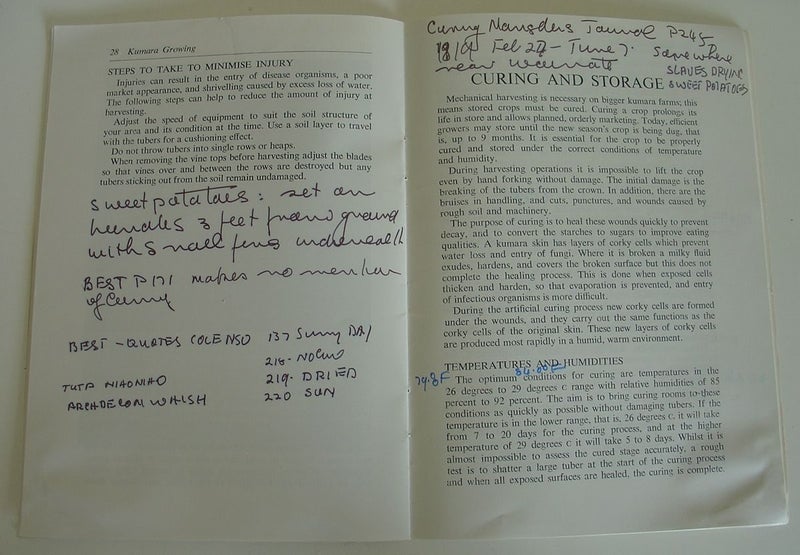 28 Kumara Growing
STEPS TO TAKE TO MINIMISE INJURY
Injuries can result in the entry of disease organisms, a poor
market appearance, and shrivelling caused by excess loss of water.
The following steps can help to reduce the amount of injury at
harvesting.
Adjust the speed of equipment to suit the soil structure of
your area and its condition at the time. Use a soil layer to travel
with the tubers for a cushioning effect.
Do not throw tubers into single rows or heaps.
When removing the vine tops before harvesting adjust the blades
so that vines over and between the rows are destroyed but any
tubers sticking out from the soil remain undamaged.
sweet potatoes : set on
hurdles 3 feet from ground
with small fires underneath
BEST P 171 makes no mention
of Curing
BEST - QUOTES COLENSO 137 Sunny DAY
218-
TUTA NIHONIHO 219. DRIED
ARCHDECON WALSH 220 SUN
Curing Marsdens Journal P245
Feb 27 - June 7. Somewhere
near
SLAVES DRYING
SWEET POTATOES
CURING AND STORAGE
Mechanical harvesting is necessary on bigger kumara farms; this
means stored crops must be cured. Curing a crop prolongs its
life in store and allows planned, orderly marketing. Today, efficient
growers may store until the new season's crop is being dug, that
is, up to 9 months. It is essential for the crop to be properly
cured and stored under the correct conditions of temperature
and humidity.
During harvesting operations it is impossible to lift the crop
even by hand forking without damage. The initial damage is the
breaking of the tubers from the crown. In addition, there are the
bruises in handling, and cuts, punctures, and wounds caused by
rough soil and machinery.
The purpose of curing is to heal these wounds quickly to prevent
decay, and to convert the starches to sugars to improve eating
qualities. A kumara skin has layers of corky cells which prevent
water loss and entry of fungi. Where it is broken a milky fluid
exudes, hardens, and covers the broken surface but this does not
complete the healing process. This is done when exposed cells
thicken and harden, so that evaporation is prevented, and entry
of infectious organisms is more difficult.
During the artificial curing process new corky cells are formed
under the wounds, and they carry out the same functions as the
corky cells of the original skin. These new layers of corky cells
are produced most rapidly in a humid, warm environment.
TEMPERATURES AND HUMIDITIES
79.8F
The optimum conditions for curing are temperatures in the
26 degrees to 29 degrees C range with relative humidities of 85
percent to 92 percent. The aim is to bring curing rooms to these
conditions as quickly as possible without damaging tubers. If the
temperature is in the lower range, that is, 26 degrees C, it will take
from 7 to 20 days for the curing process, and at the higher
temperature of 29 degrees C it will take 5 to 8 days. Whilst it is
almost impossible to assess the cured stage accurately, a rough
test is to shatter a large tuber at the start of the curing process
and when all exposed surfaces are healed, the curing is complete.